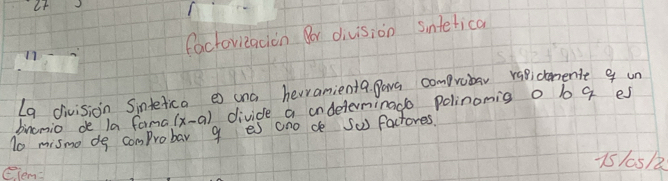 27
factorización Por división sintetica
La división Sintetica es una herramienta para comprobar rapidamente q un
binomio de la forma (x-a) divide a un determinado polinomio o b q es
lo mismo de comprobar q es uno de sus factores.
Ejem: